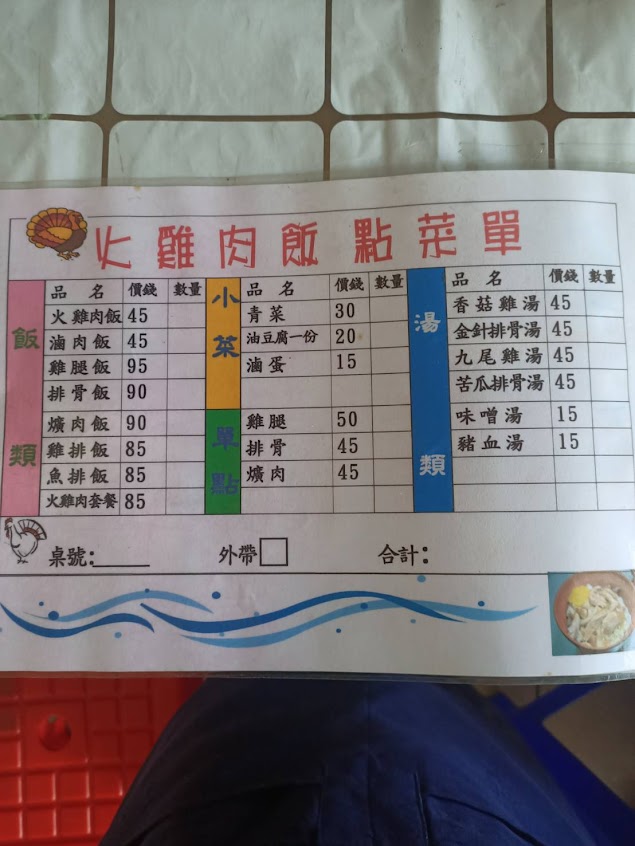 火雞肉飯點菜單
飯類
品名 價錢 數量
火雞肉飯 45
滷肉飯 45
雞腿飯 95
排骨飯 90
爌肉飯 90
雞排飯 85
魚排飯 85
火雞肉套餐 85
小菜
品名 價錢 數量
青菜 30
油豆腐一份 20
滷蛋 15
單點
雞腿 50
排骨 45
爌肉 45
湯類
品名 價錢 數量
香菇雞湯 45
金針排骨湯 45
九尾雞湯 45
苦瓜排骨湯 45
味噌湯 15
豬血湯 15
桌號:_____ 外帶□ 合計: